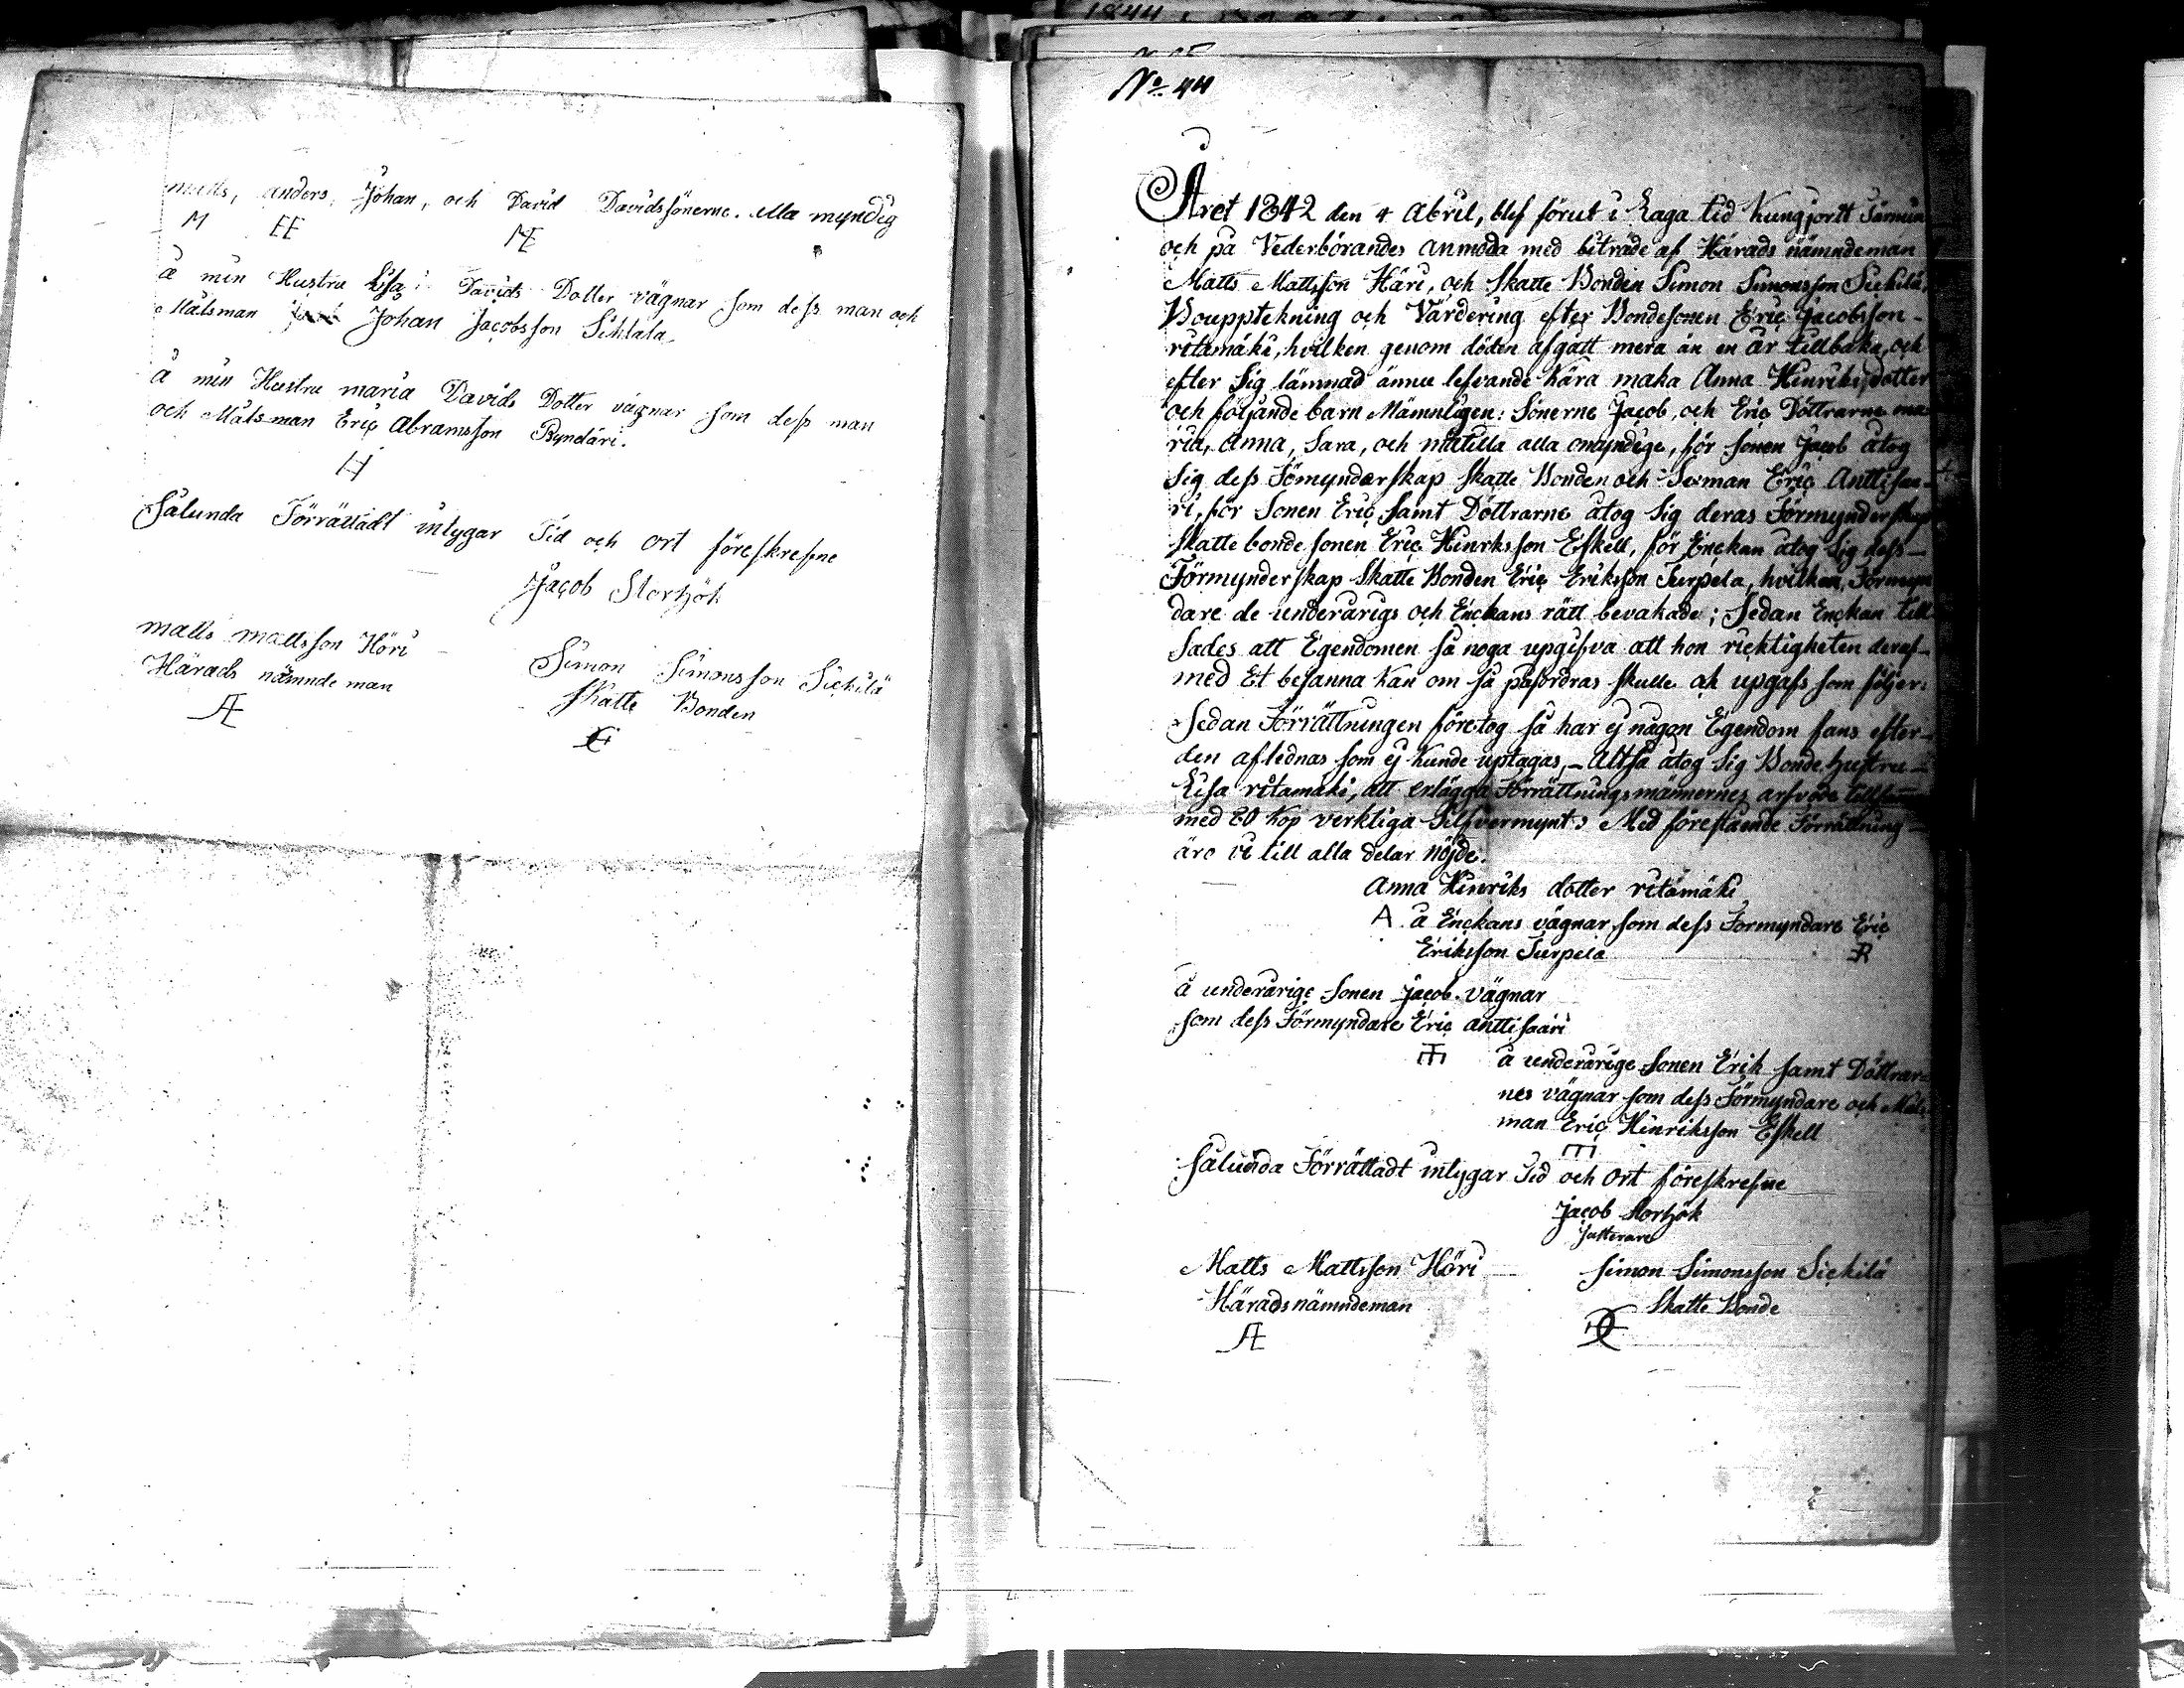 matts, anders, Johan, och David Davidssönerne. alla myndig
M FF ME
å min Hustru Lisa Davids Dotter vägnar som dess man och
Målsman Johan Jacobsson Sihlala
å min Hustru maria Davids Dotter vägnar som dess man
och Målsman Eric Abramsson Ryndäri.
H
Sålunda Förrättadt intygar Tid och ort föreskrefne
Jacob Stortjök
matts mattsson Höri
Härads nämndeman
Æ
Simon Simonsson Sickilä
Skatte Bonden
1844
No 44
Året 1842 den 4 Abril, blef förut i Laga tid Kungjordt
och på Vederbörandes anmoda med biträde af Härads nämndeman
Matts Mattsson Häri, och Skatte Bonden Simon Simonsson Sickilä,
Boupptekning och Värdering efter Bondesonen Eric Jacobsson
ritamäki, hvilken genom döden afgått mera än en år tillbaka, och
efter Sig lämnad ännu lefvande Kära maka Anna Hinriksdotter
och föijande barn Nämnligen: Sönerne Jacob, och Eric Döttrarne ma
ria, Anna, Sara, och matilla alla omyndige, för sonen Jacob åtog
Sig dess Förnynderskap Skatte Bonden och Sexman Eric Anttisaa
ri, för Sonen Eric samt Döttrarne åtog Sig deras Förmynderskap
Skatte bonde sonen Eric Hinrksson Eskell, för Enckan åtog Sig dess
Förmynderskap Skatte Bonden Eric Eriksson Surpela, hvilkan Förmyn
dare de underårigs och Enckans rätt bevakade; Sedan Enckan till
Sades att Egendomen så noga upgifva att hon ricktigheten deraf
med Et besanna Kan om så påfordras skulle ok upgafs som följer:
Sedan Förrättningen företog så har ej någon Egendom fans efter
den aflednas som ej Kunde uptagas, Altså åtog Sig Bonde hustru
Lisa ritamäki, att erlägga Förrättningsmännernes arfvode till
med 80 Kop verkliga Silfvermynt: Med förestående Förrättning
äro vi till alla delar nöjde.
Anna Hinriks dotter ritamäki
A å Enckans vägnar som dess Formyndare Eric
Eriksson Surpela R
å underårige sonen Jacob. vägnar
som dess Förmyndare Eric anttisaari
å underårige Sonen Erik samt Döttrar
nes vägnar som dess Förmyndare och Måls
man Eric Hinriksson Eskell
m
Sålunda Förrättadt intygar Tid och ort föreskrefne
Jacob Stortjök
Matts Mattsson Höri
Häradsnämndeman
Æ
Simon Simonsson Sickilä
Skatte Bonde